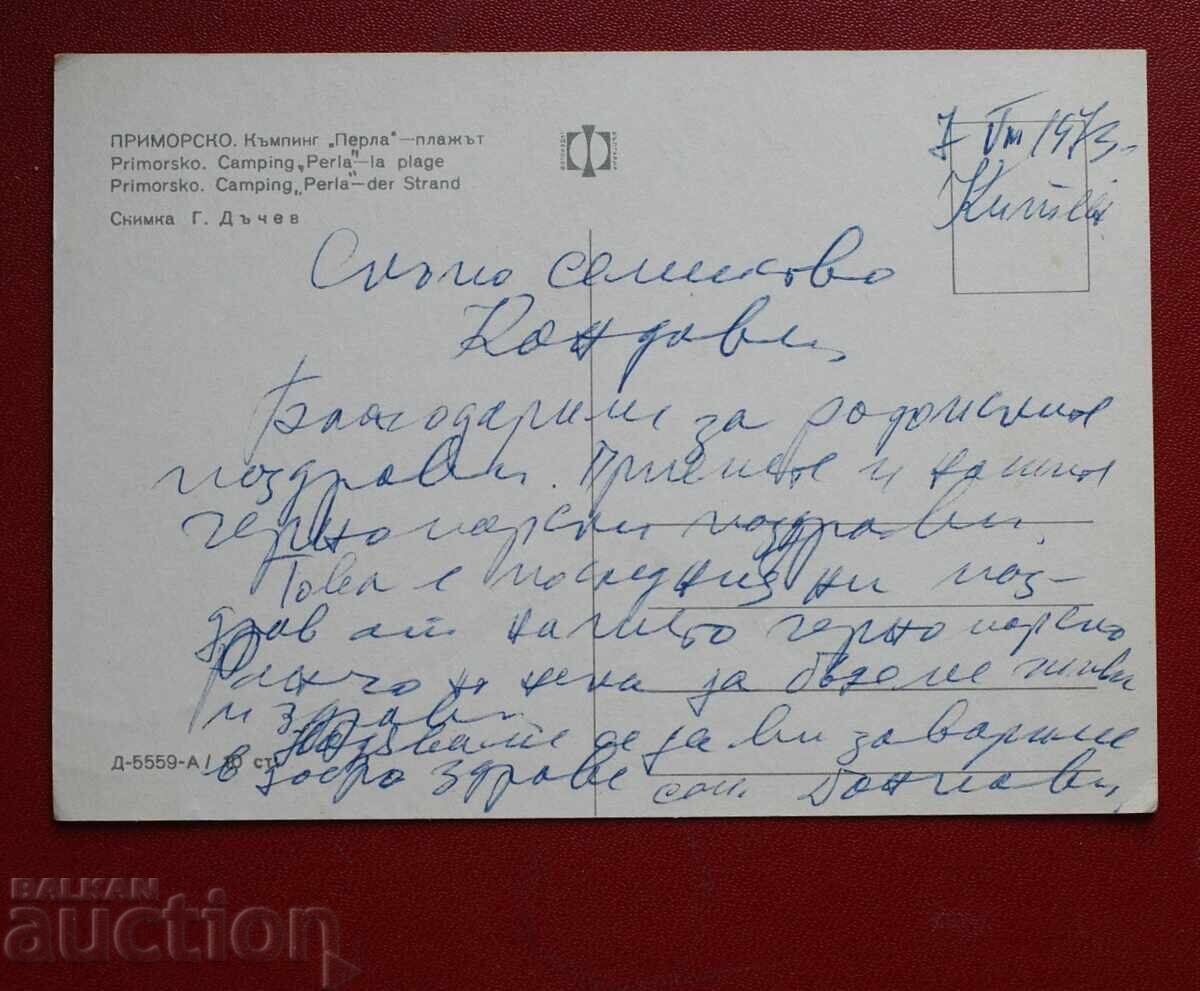 ПРИМОРСКО. Къмпинг „Перла“—плажът
Primorsko. Camping „Perla“—la plage
Primorsko. Camping „Perla“—der Strand
Снимка Г. Дъчев
7 VIII 1973
Китен
Скъпо семейство
Благодарим за родопските
поздрави. Приемете и нашите
черноморски поздрави.
Това е последния ни поз-
драв от нашето черноморско
за бъдем живи
и здрави
Надяваме се да ви заварим
в добро здраве сем.
Д-5559-А/ 10 ст.
BALKAN
auction